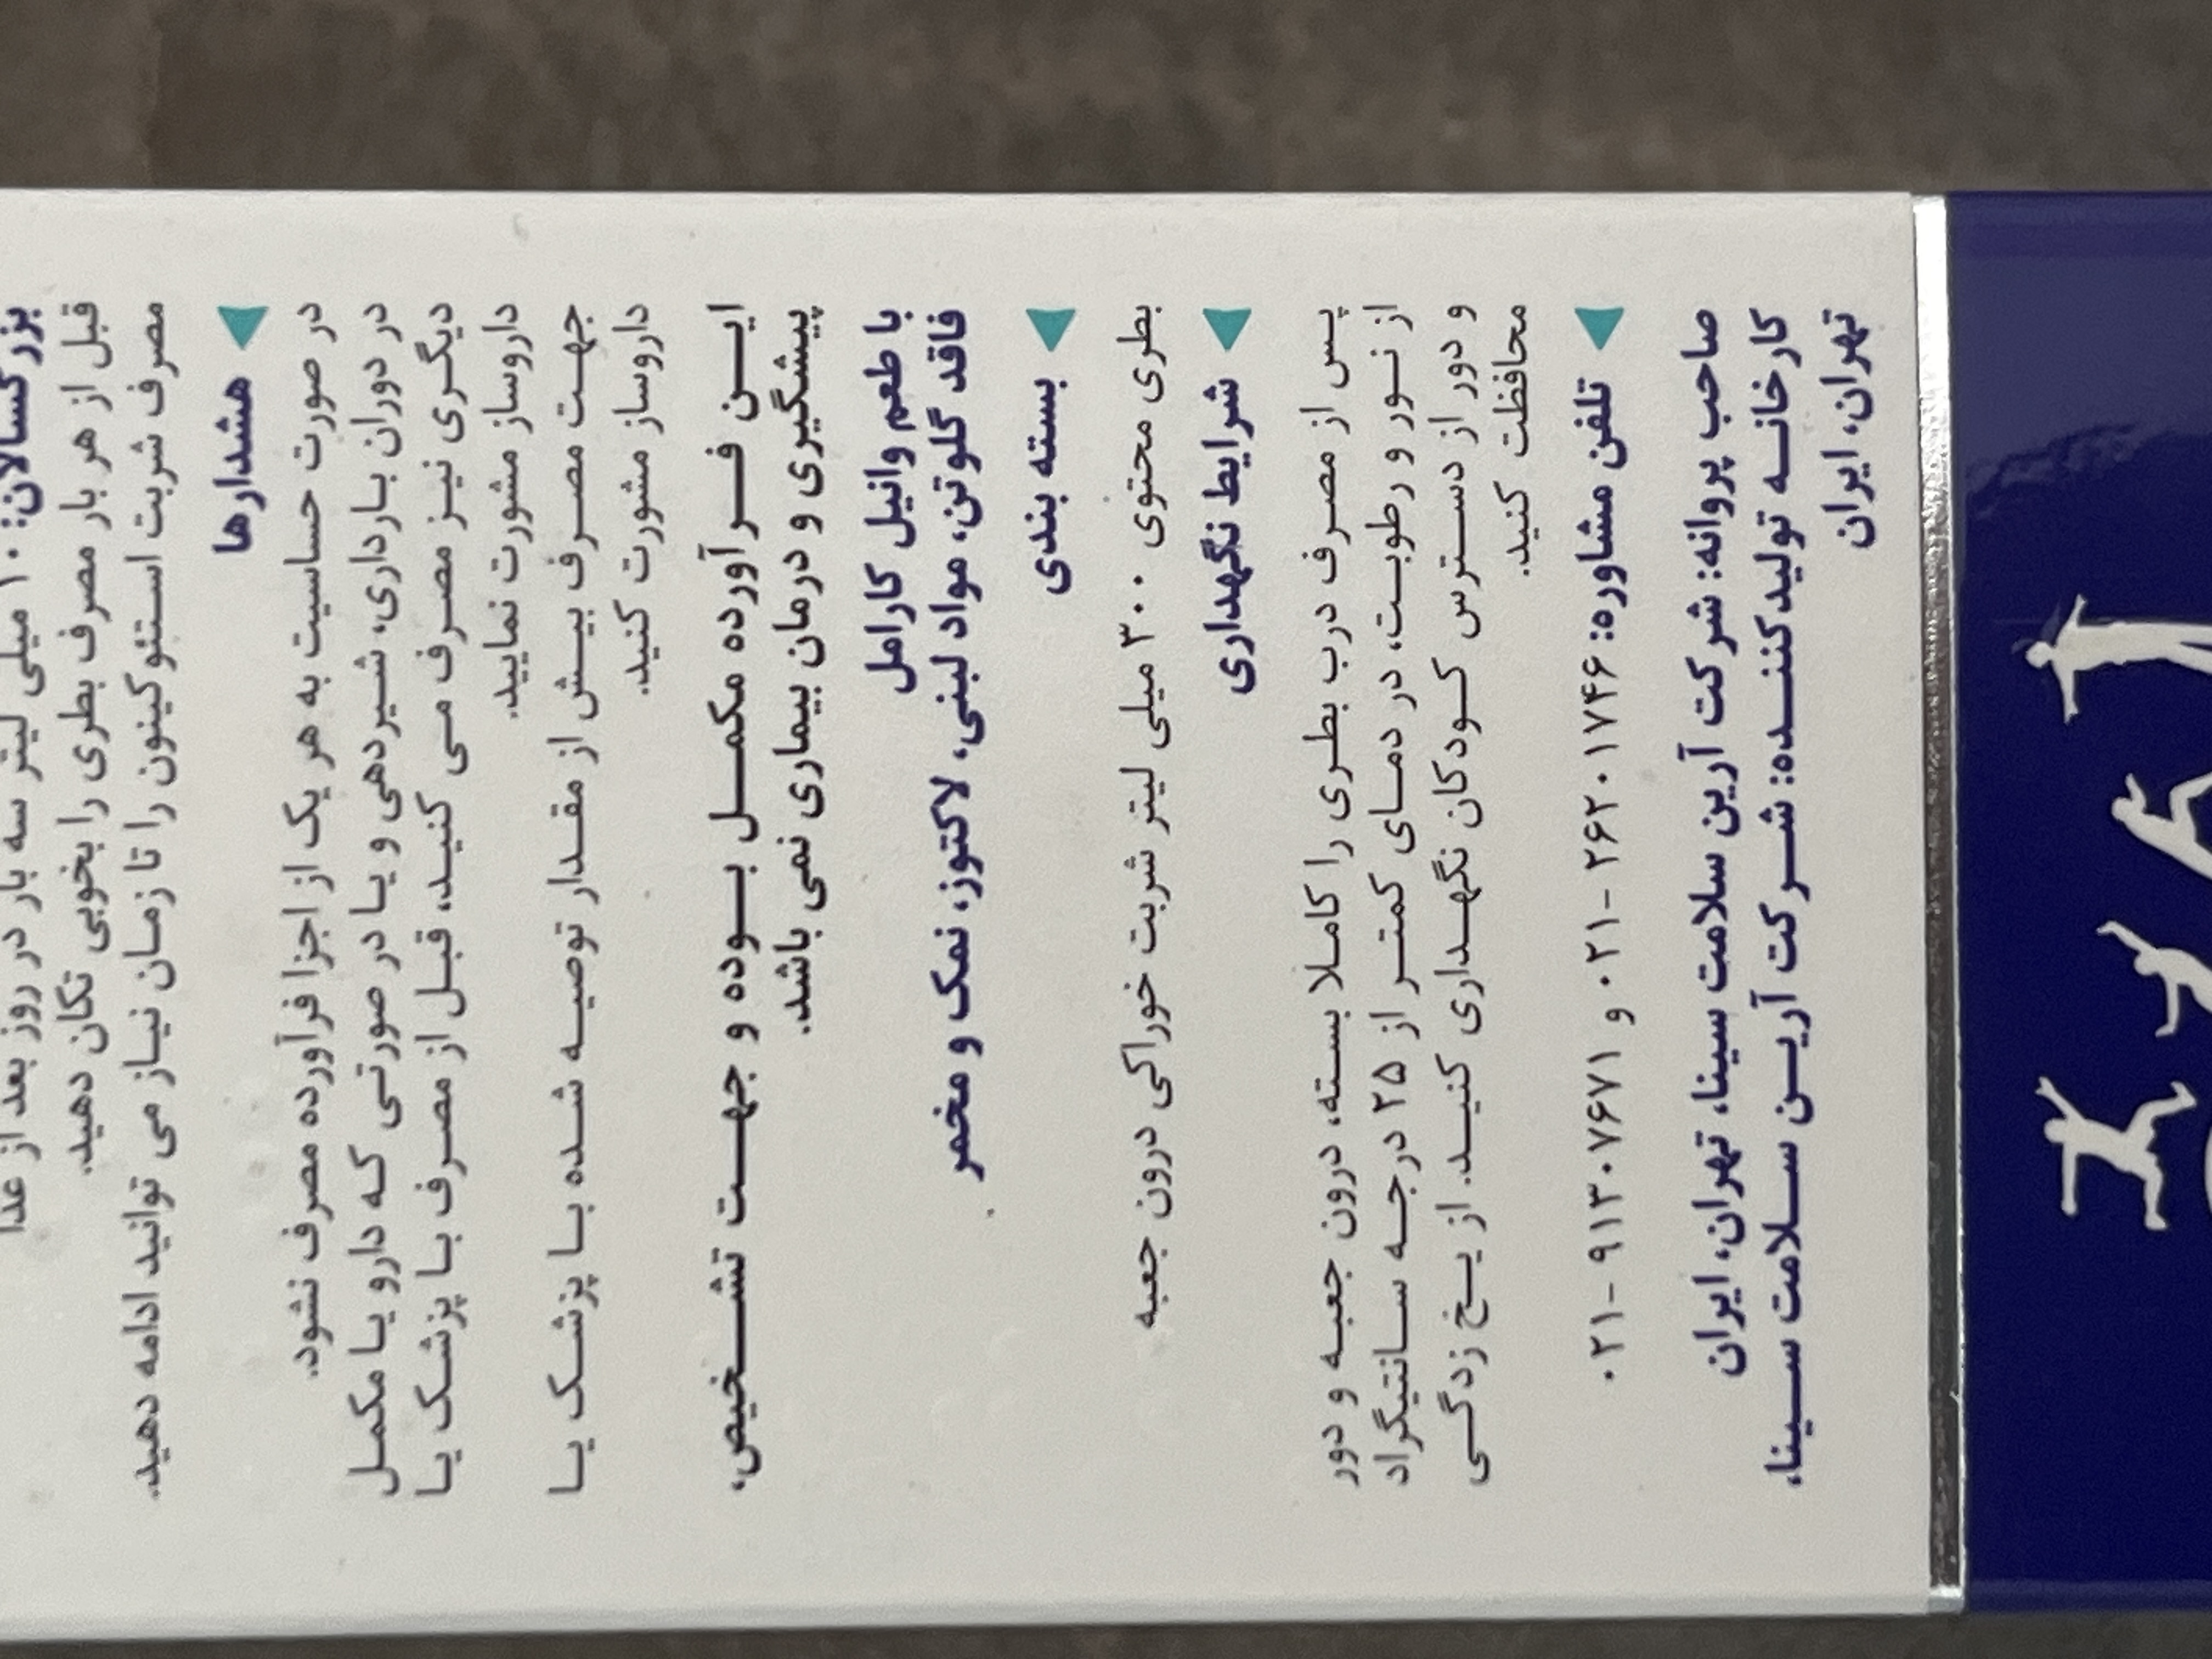 بزرگسالان: ۱۰ میلی لیتر سه بار در روز بعد از غذا
قبل از هر بار مصرف بطری را بخوبی تکان دهید.
مصرف شربت استئوکینون را تا زمان نیاز می توانید ادامه دهید.
هشدارها
در صورت حساسیت به هر یک از اجزا فرآورده مصرف نشود.
در دوران بارداری، شیردهی و یا در صورتی که دارو یا مکمل
دیگری نیز مصرف می کنید، قبل از مصرف با پزشک یا
داروساز مشورت نمایید.
جهت مصرف بیش از مقدار توصیه شده با پزشک یا
داروساز مشورت کنید.
این فرآورده مکمل بوده و جهت تشخیص،
پیشگیری و درمان بیماری نمی باشد.
با طعم وانیل کارامل
فاقد گلوتن، مواد لبنی، لاکتوز، نمک و مخمر
بسته بندی
بطری محتوی ۳۰۰ میلی لیتر شربت خوراکی درون جعبه
شرایط نگهداری
پس از مصرف درب بطری را کاملا بسته، درون جعبه و دور
از نور و رطوبت، در دمای کمتر از ۲۵ درجه سانتیگراد
و دور از دسترس کودکان نگهداری کنید. از یخ زدگی
محافظت کنید.
تلفن مشاوره: ۲۶۲۰۱۷۴۶ -۰۲۱ و ۹۱۳۰۷۶۷۱ -۰۲۱
صاحب پروانه: شرکت آرین سلامت سینا، تهران، ایران
کارخانه تولیدکننده: شرکت آرین سلامت سینا،
تهران، ایران